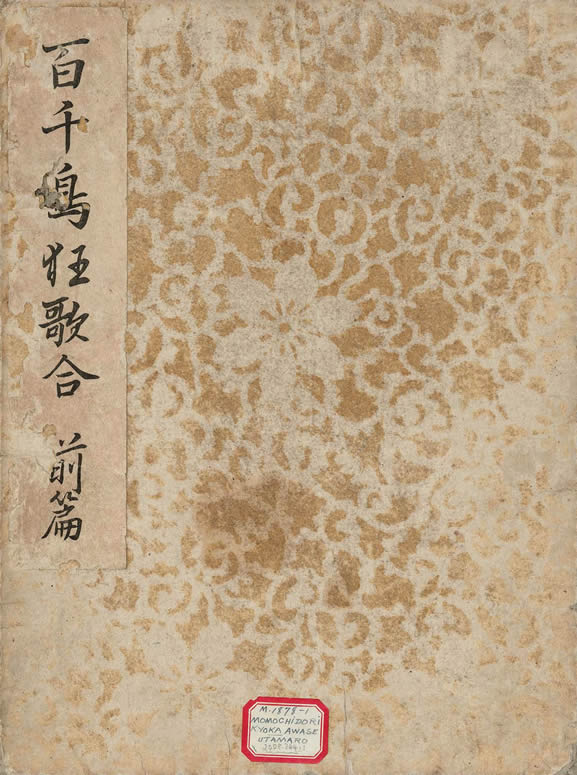 百千鳥狂歌合 前篇
M.1878-1
MOMOCHIDORI
KYOKA AWASE
UTAMARO